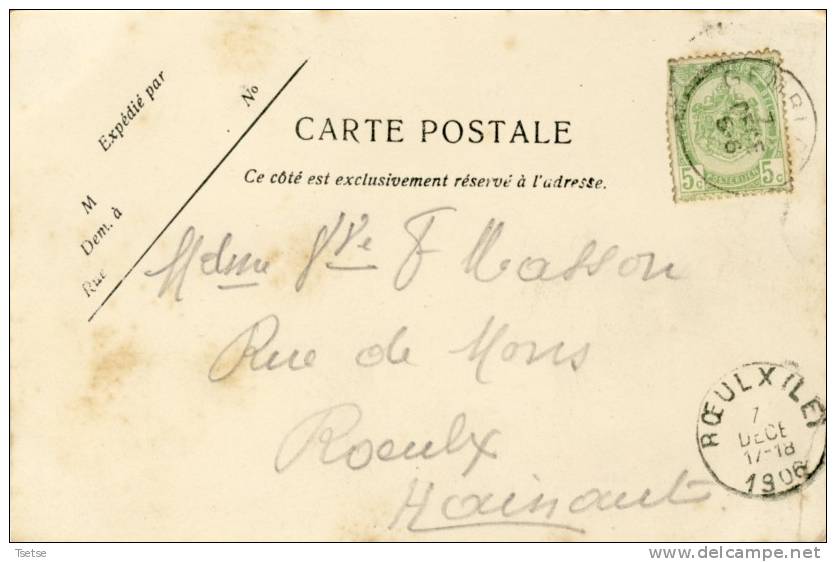 Expédié par
No
M
Dem. à
Rue
CARTE POSTALE
Ce côté est exclusivement réservé à l'adresse.
5c 5c
7
DECE
Mdme Vve F Masson
Rue de Mons
Roeulx
Hainaut
RŒULX (LE)
7
DECE
17-18
1906
Tsetse
delcampe.net